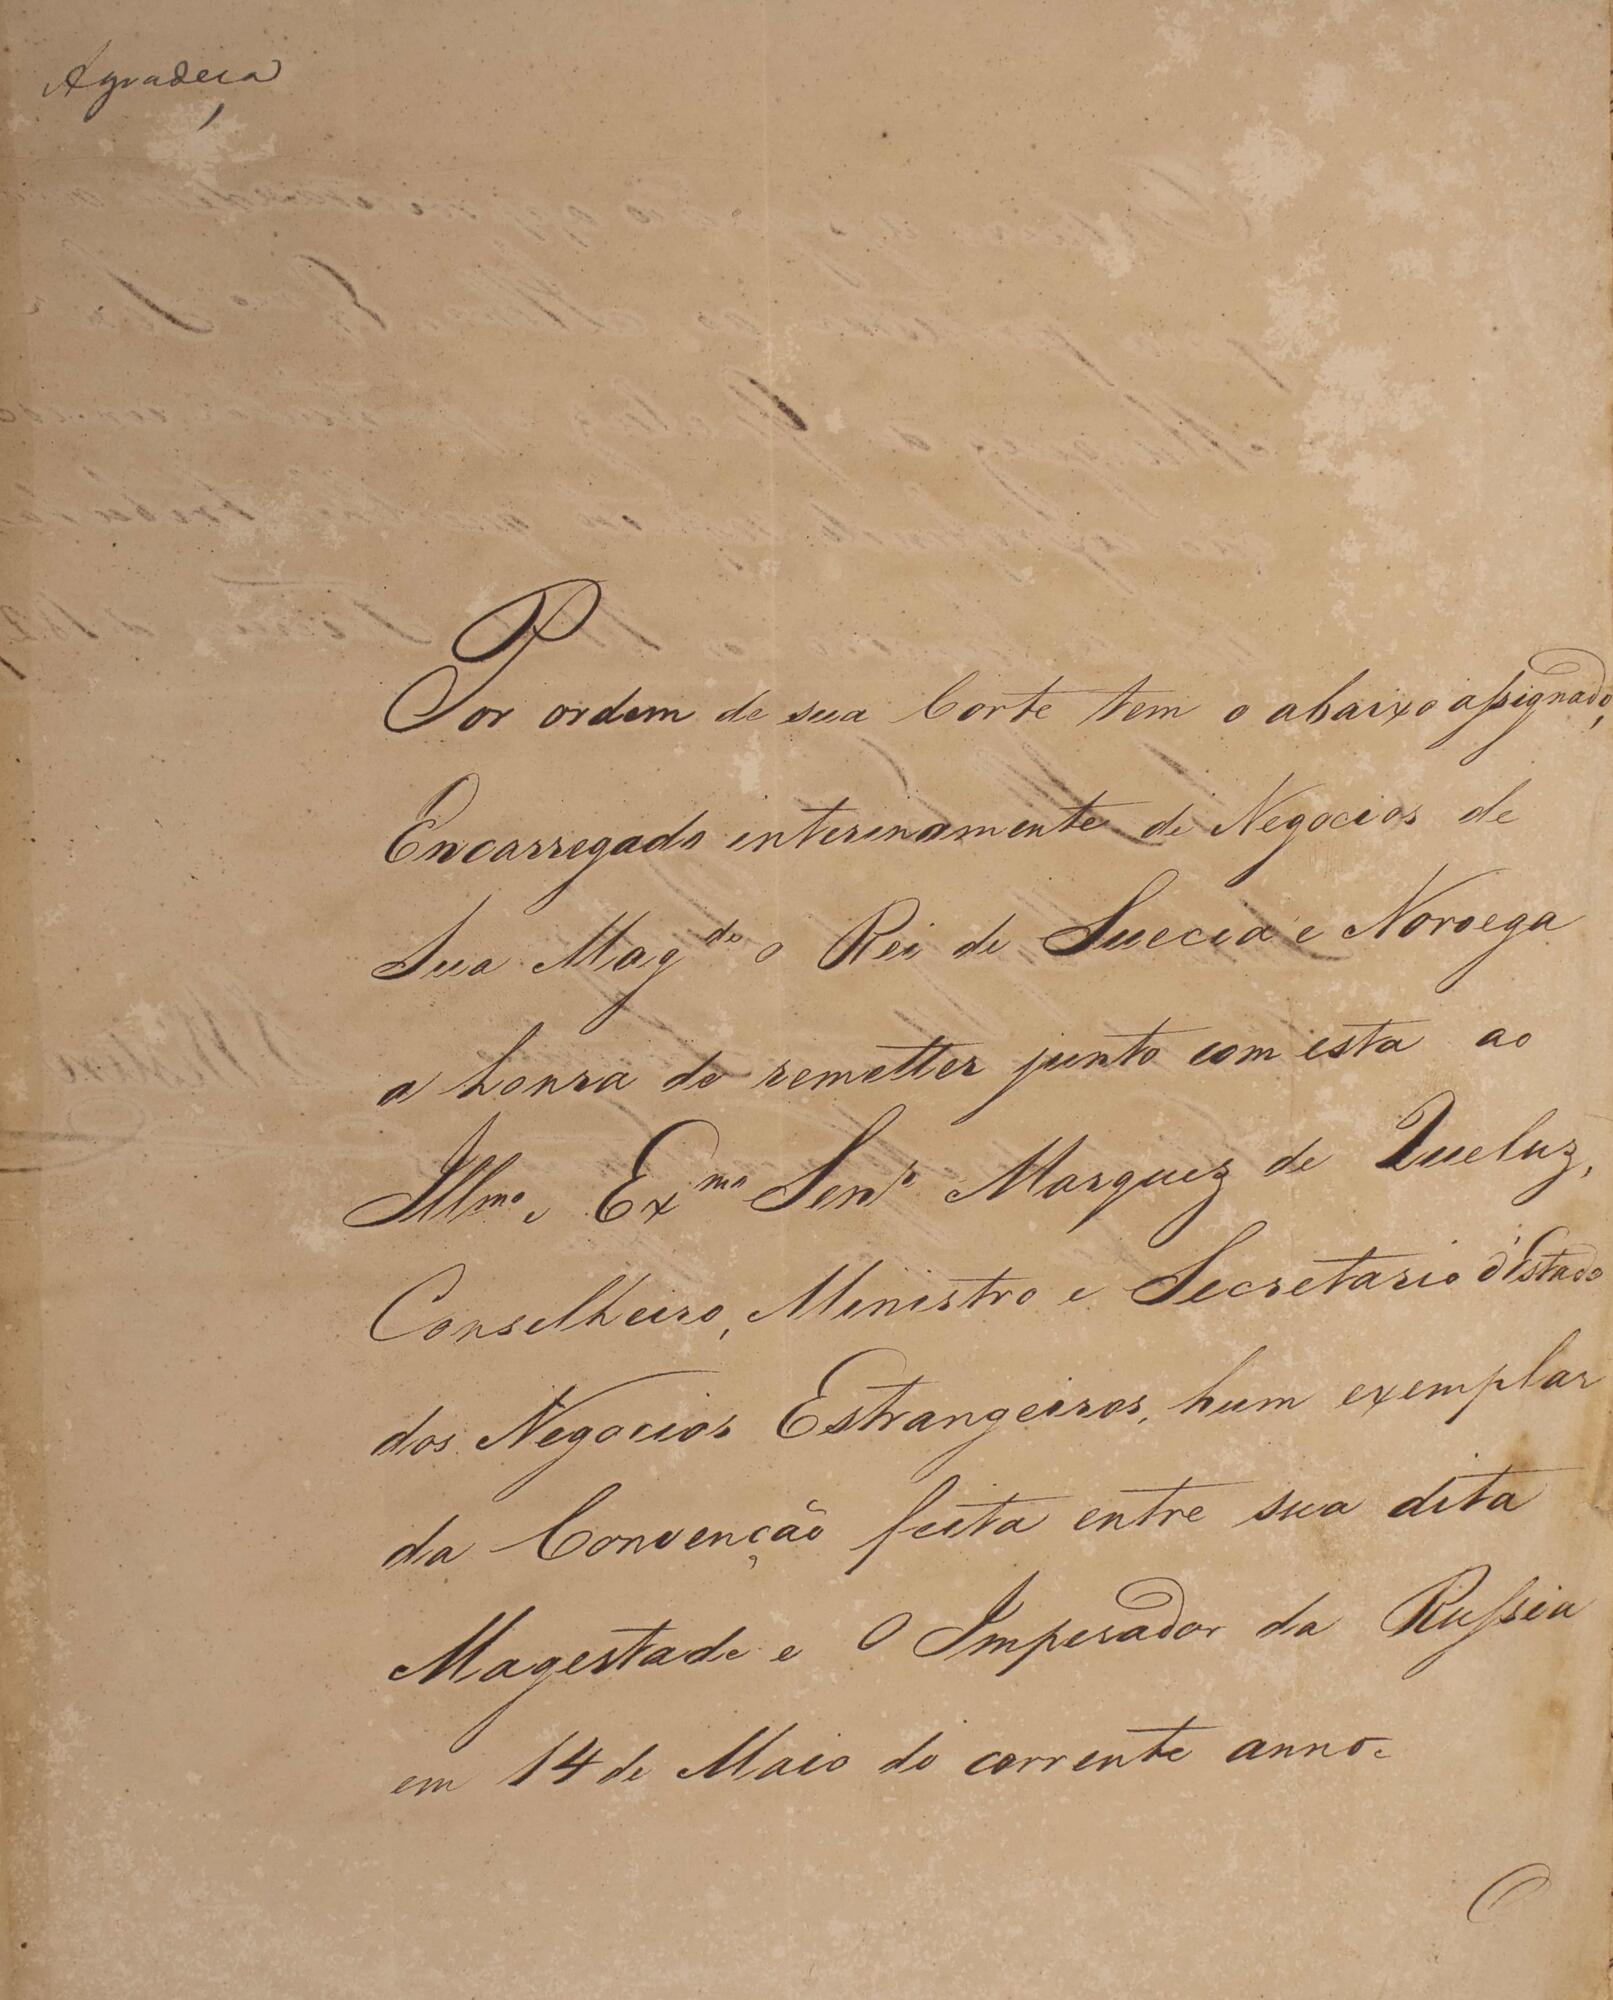 Agradeça
Por ordem de sua Corte tem o abaixo assignado,
Encarregado interinamente de Negocios de
Sua Mag.de o Rei de Suecia e Noroega
a honra de remetter junto com esta ao
Illmo. e Exmo Senr Marquez de Queluz,
Conselheiro, Ministro e Secretario d'Estado
dos Negocios Estrangeiros, hum exemplar
da Convenção feita entre sua dita
Magestade e O Imperador da Russia
em 14 de Maio do corrente anno.
O